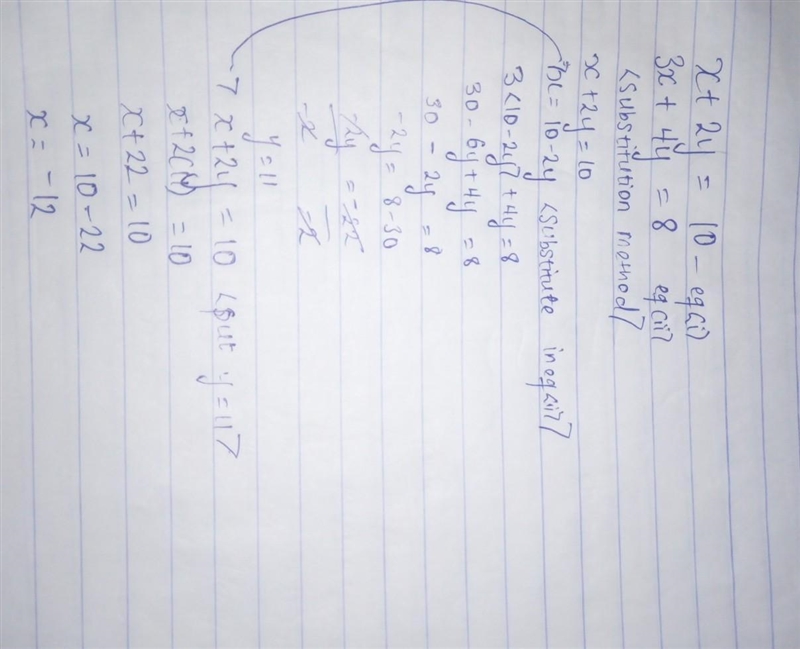 x + 2y = 10 - eq<i>
3x + 4y = 8 eq<ii>
<substitution method>
x + 2y = 10
x = 10 - 2y <substitute in eq<ii>>
3<10 - 2y> + 4y = 8
30 - 6y + 4y = 8
30 - 2y = 8
-2y = 8 - 30
-2y = -22
-2 -2
y = 11
→ x + 2y = 10 <put y = 11>
x + 2(11) = 10
x + 22 = 10
x = 10 - 22
x = -12